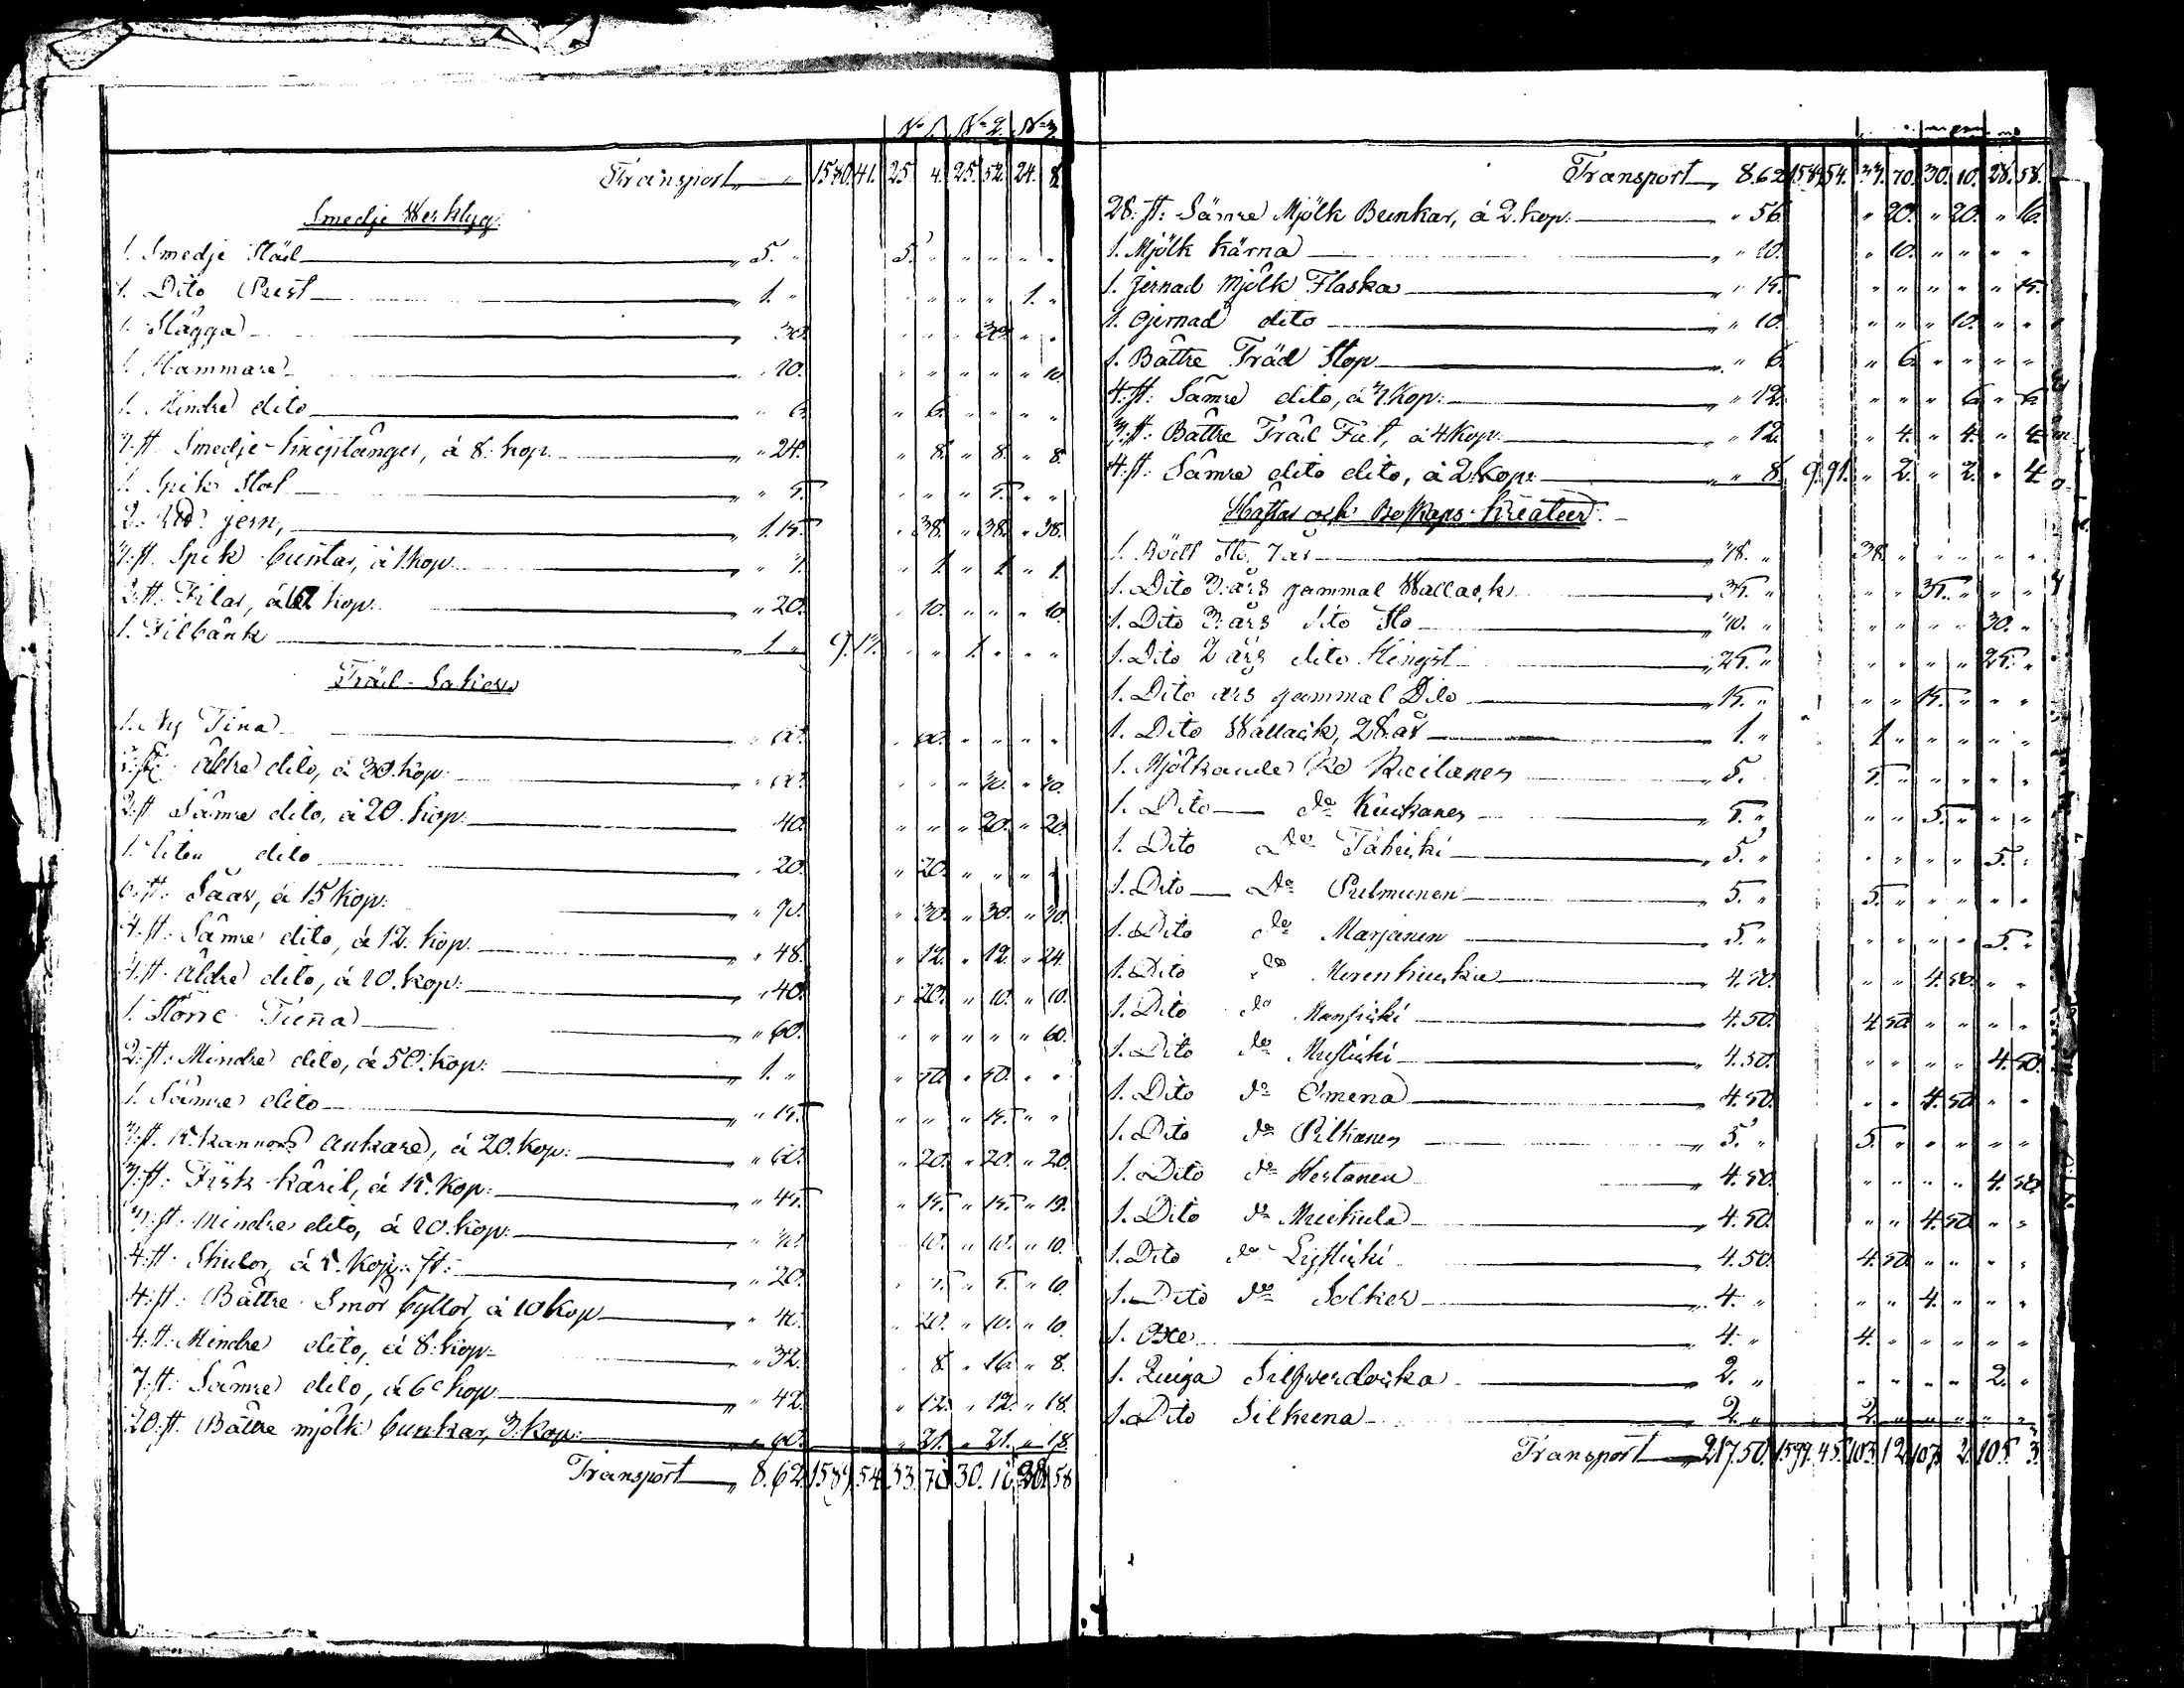 No 1. No 2. No 3.
Transport „ „ 1580. 41. 25. 4. 25. 52. 24. 8.
Smedje Werktyg:
1. Smedje Städ „ 5. „ 5. „ „ „ „ „
1. Dito „ 1. „ „ „ „ „ 1. „
1. Slägga „ „ 30. „ „ „ 30. „ „
1. Hammare „ „ 10. „ „ „ „ „ 10.
1. Mindre dito „ „ 6. „ 6. „ „ „ „
3. st. Smedje-Kniptänger, á 8. kop. „ „ 24. „ 8. „ 8. „ 8.
1. Spik Stål „ „ 5. „ „ „ 5. „ „
jern, „ 1.15. „ 38. „ 38. „ 38.
3. st. Spik á 1 kop „ „ 3. „ 1. „ 1. „ 1.
2. st. Filar, á kop. „ „ 20. „ 10. „ „ „ 10.
1. Filbänk „ 1. „ 9. 13. „ „ 1. „ „ „
Träd-Saker
1. Ny Tina „ „ 60. „ 60. „ „ „ „
2. st. äldre dito, á 30. kop. „ „ 60. „ „ „ 30. „ 30.
2. st. Sämre dito, á 20. kop. „ „ 40. „ „ „ 20. „ 20.
1. liten dito „ „ 20. „ 20. „ „ „ „
6. st. Såar, á 15 kop. „ „ 90. „ 30. „ 30. „ 30.
4. st. Sämre dito, á 12. kop. „ „ 48. „ 12. „ 12. „ 24.
4. st. äldre dito, á 10. kop. „ „ 40. „ 20. „ 10. „ 10.
1. Större Tunna „ „ 60. „ „ „ „ „ 60.
2. st. Mindre dito, á 50. kop. „ 1. „ „ 50. „ 50. „ „
1. Sämre dito „ „ 15. „ „ „ 15. „ „
3. st. 15. kannors Ankare, á 20. kop. „ „ 60. „ 20. „ 20. „ 20.
3. st. Fisk-käril, á 15. kop. „ „ 45. „ 15. „ 15. „ 15.
3. st. Mindre dito, á 10. kop. „ „ 30. „ 10. „ 10. „ 10.
4. st. á 5. kop. st. „ „ 20. „ 5. „ 5. „ 10.
4. st. Bättre Smör byttor, á 10 kop „ „ 40. „ 20. „ 10. „ 10.
4. st. Mindre dito, á 8. kop. „ „ 32. „ 8. „ 16. „ 8.
7. st. Sämre dito, á 6 kop. „ „ 42. „ 12. „ 12. „ 18.
20. st. Bättre mjölk bunkar, 3. kop. „ „ 60. „ 21. „ 21. „ 18.
Transport „ 8.62. 1589. 54. 33. 70. 30. 10. 28. 58
Transport „ 8.62. 1589. 54. 33. 70. 30. 10. 28. 58.
28. st. Sämre Mjölk Bunkar, á 2. kop. „ 56. „ 20. „ 20. „ 16.
1. Mjölk kärna „ „ 10. „ 10. „ „ „ „
1. Jernad mjölk Flaska „ „ 15. „ „ „ „ „ 15.
1. Ojernad dito „ „ 10. „ „ „ 10. „ „
1. Bättre Träd Stop „ „ 6. „ 6. „ „ „ „
4. st. Sämre dito, á 3. kop. „ „ 12. „ „ „ 6. „ 6.
3. st. Bättre Träd Fat, á 4 kop. „ „ 12. „ 4. „ 4. „ 4.
4. st. Sämre dito dito, á 2. kop. „ „ 8. 9. 91. „ 2. „ 2. „ 4
Hästar och Boskaps-kreatur.
1. Rödt Sto, 7 år „ 38. „ 38. „ „ „ „ „
1. Dito 3. års gammal Wallack „ 35. „ „ „ 35. „ „ „
1. Dito 3. års dito Sto „ 30. „ „ „ „ „ 30. „
1. Dito 2 års dito Hingst „ 25. „ „ „ „ „ 25. „
1. Dito års gammal Dito „ 15. „ „ „ 15. „ „ „
1. Dito Wallack, 28. år „ 1. „ 1 „ „ „ „ „
1. Mjölkande Ko „ 5. 5. „ „ „ „ „
1. Dito do „ 5. „ „ „ 5. „ „ „
1. Dito Do Tähicki „ 5. „ „ „ „ „ 5. „
1. Dito Do Pulmunen „ 5. „ 5. „ „ „ „ „
1. Dito do Marjanen „ 5. „ „ „ „ „ 5. „
1. Dito do „ 4.50. „ „ 4. 50. „ „
1. Dito do Mansicki „ 4.50. 4. 50. „ „ „ „
1. Dito do Musticki „ 4.50. „ „ „ „ 4. 50.
1. Dito do Omena „ 4.50. „ „ 4. 50. „ „
1. Dito do „ 5. „ 5. „ „ „ „ „
1. Dito do Hertanen „ 4.50. „ „ „ „ 4. 50.
1. Dito do „ 4.50. „ „ 4. 50. „ „
1. Dito do Lysticki „ 4.50. 4. 50. „ „ „ „
1. Dito do „ 4. „ „ „ 4. „ „ „
1. Oxe „ 4. „ 4. „ „ „ „ „
1. Quiga Silfwerdocka „ 2. „ „ „ „ „ 2. „
1. Dito Silkuna „ 2. „ 2. „ „ „ „ „
Transport „ 217.50. 1599. 45. 103. 12. 103. 2. 105. 3.